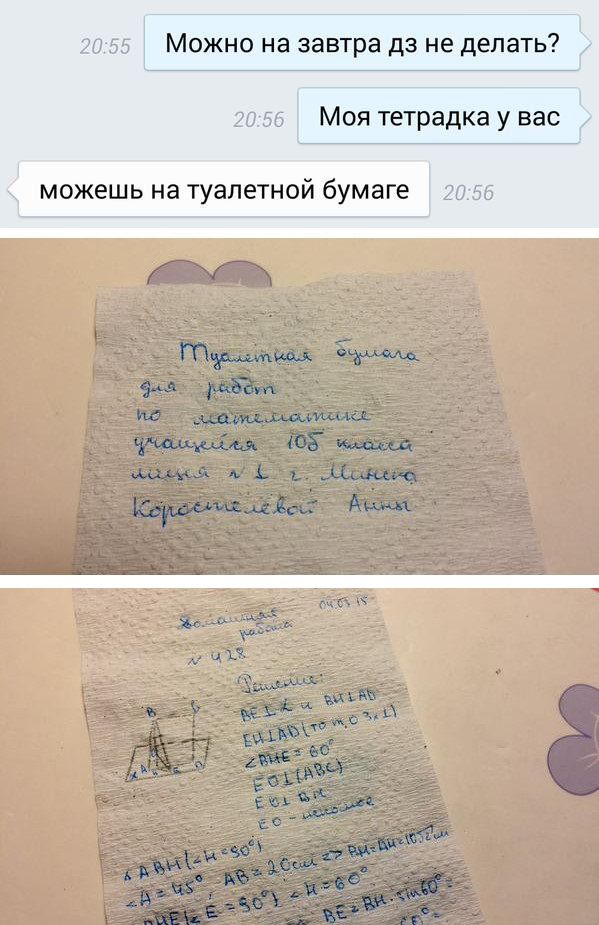 20:55 Можно на завтра дз не делать?
20:56 Моя тетрадка у вас
можешь на туалетной бумаге 20:56
Туалетная бумага
для работ
по математике
учащейся 10б класса
лицея №1 г. Минска
Коростелёвой Анны
04.03.15
Домашняя
работа
№ 428
Решение:
BE⊥α и BH⊥AD
EH⊥AD (по т. о 3х⊥)
∠BHE = 60°
EO⊥(ABC)
EO⊥BH
EO - искомое
ΔABH (∠H=90°)
∠A = 45° AB = 20см => BH=AH=10√2см
ΔBHE (∠E = 90°) ∠H=60°
BE=BH·sin60°=